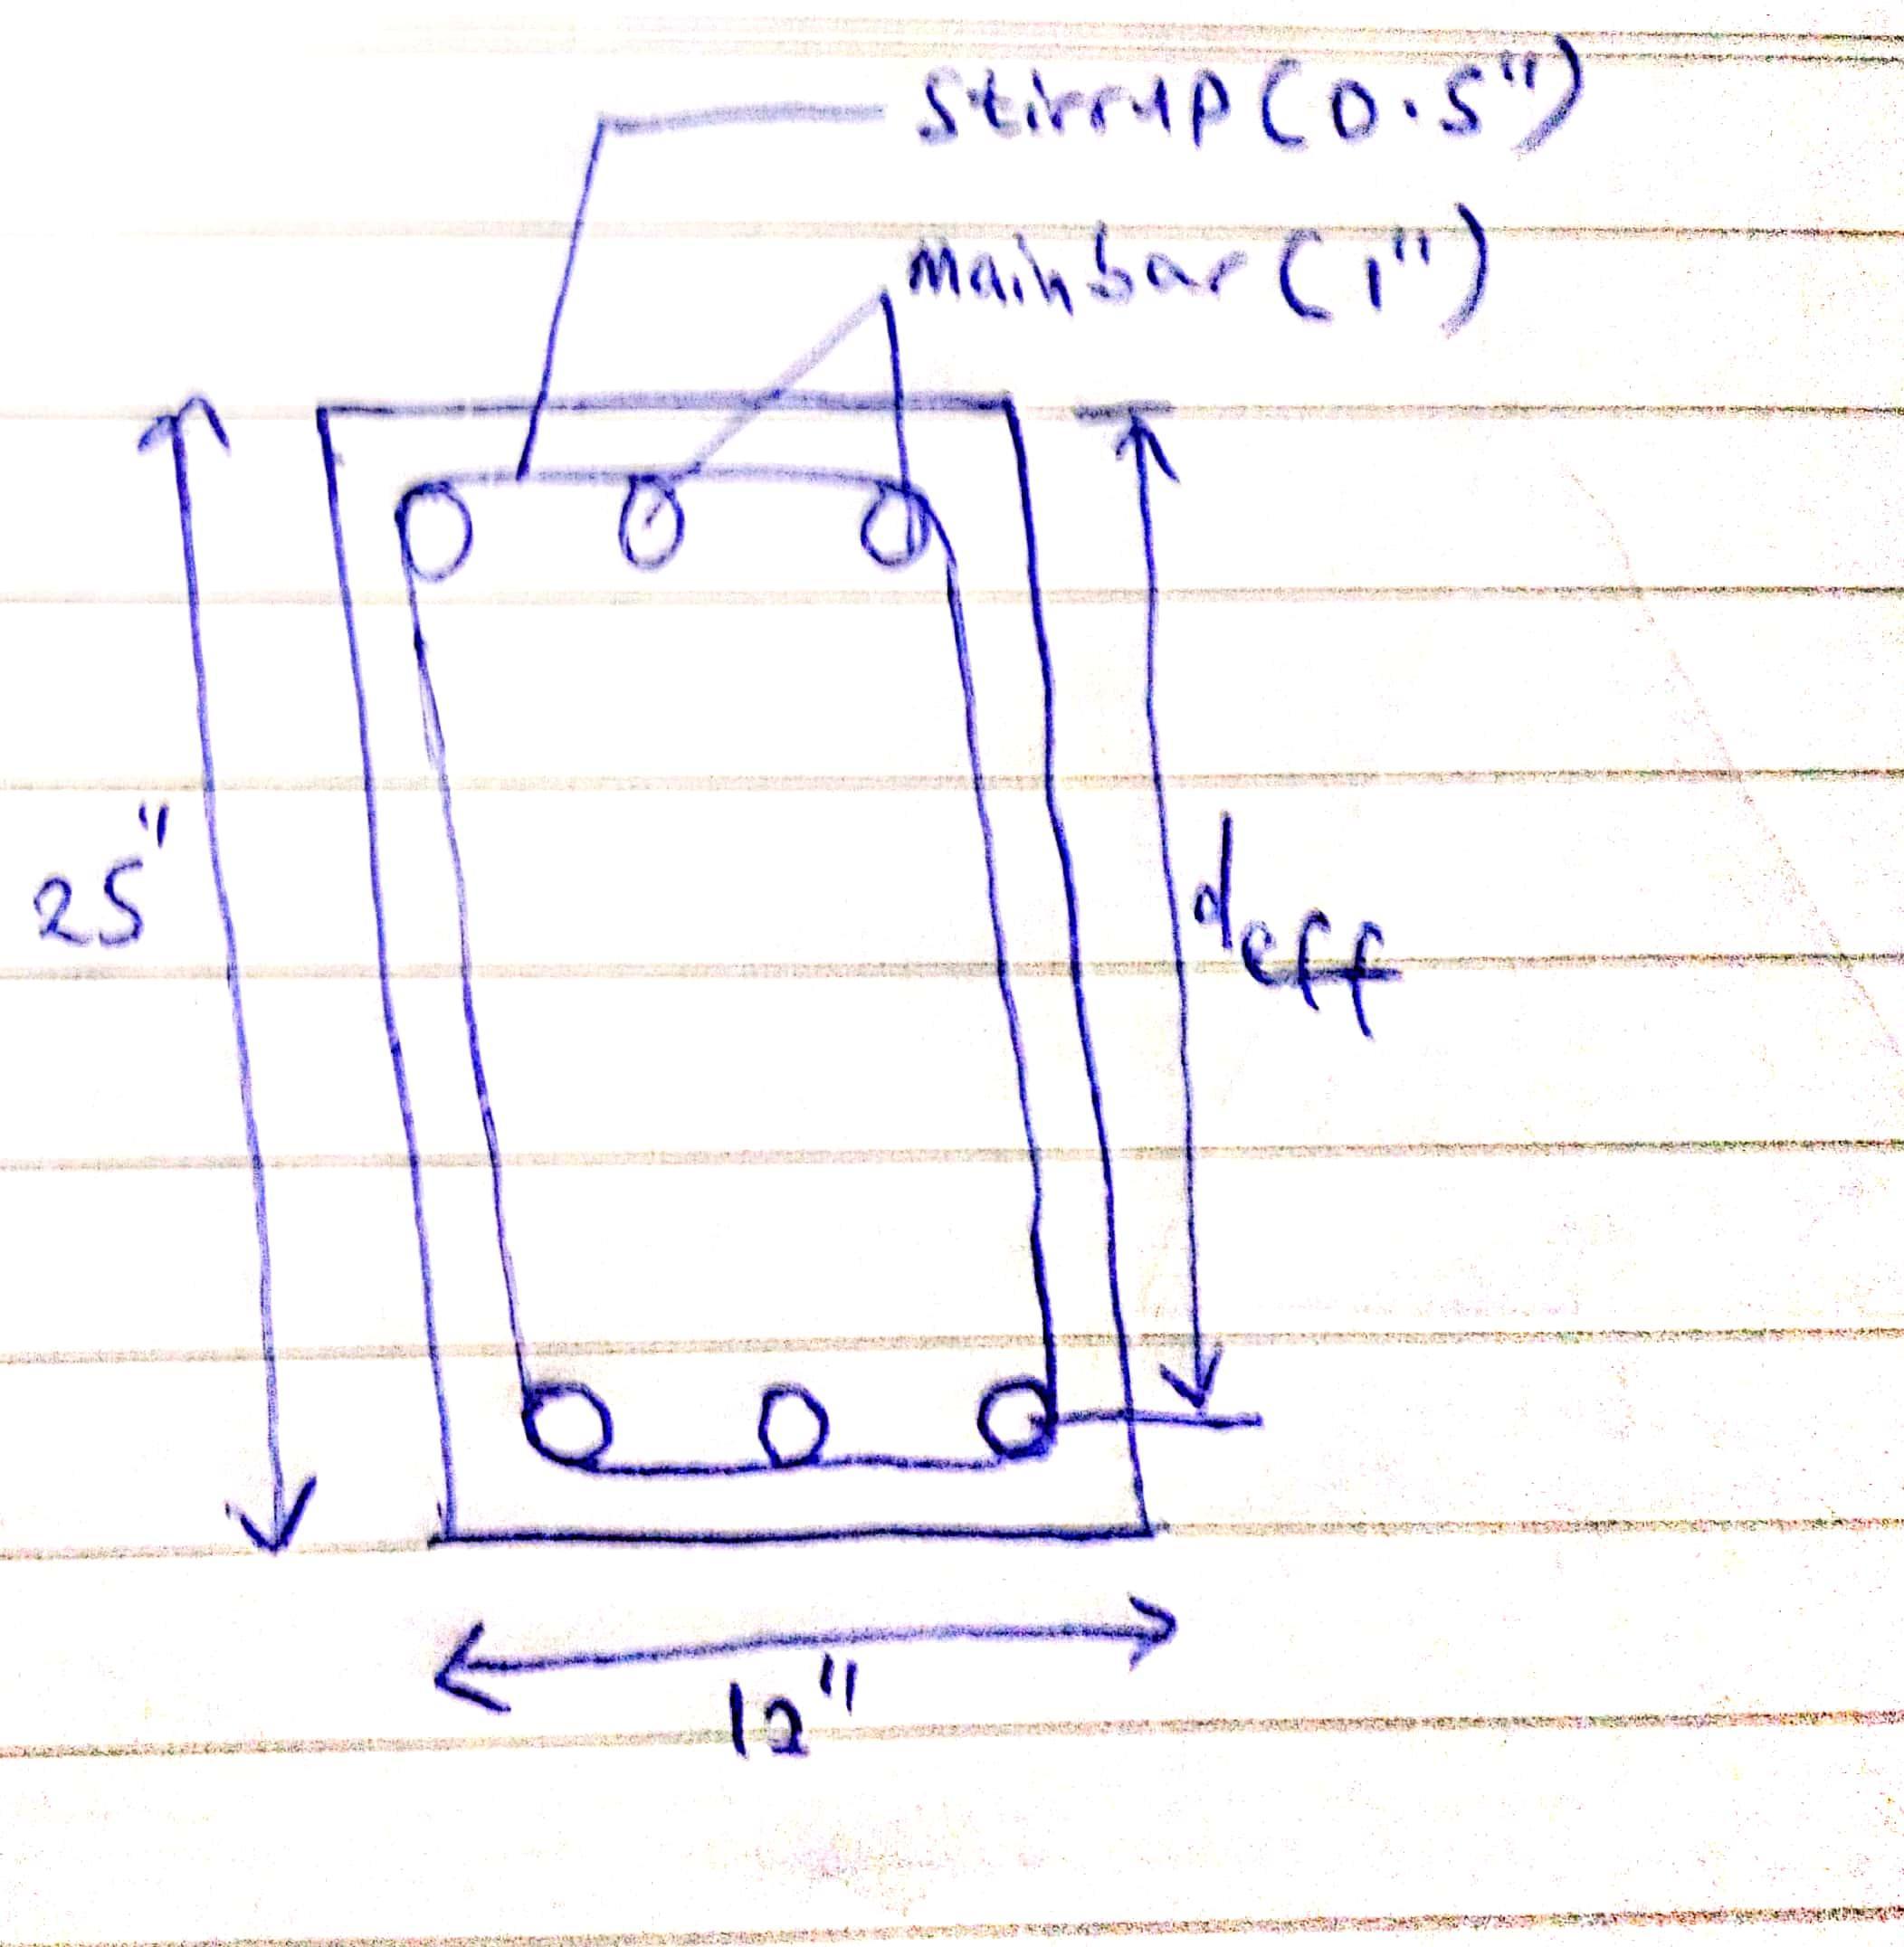 Stirrup (0.5")
Main bar (1")
25"
deff
12"